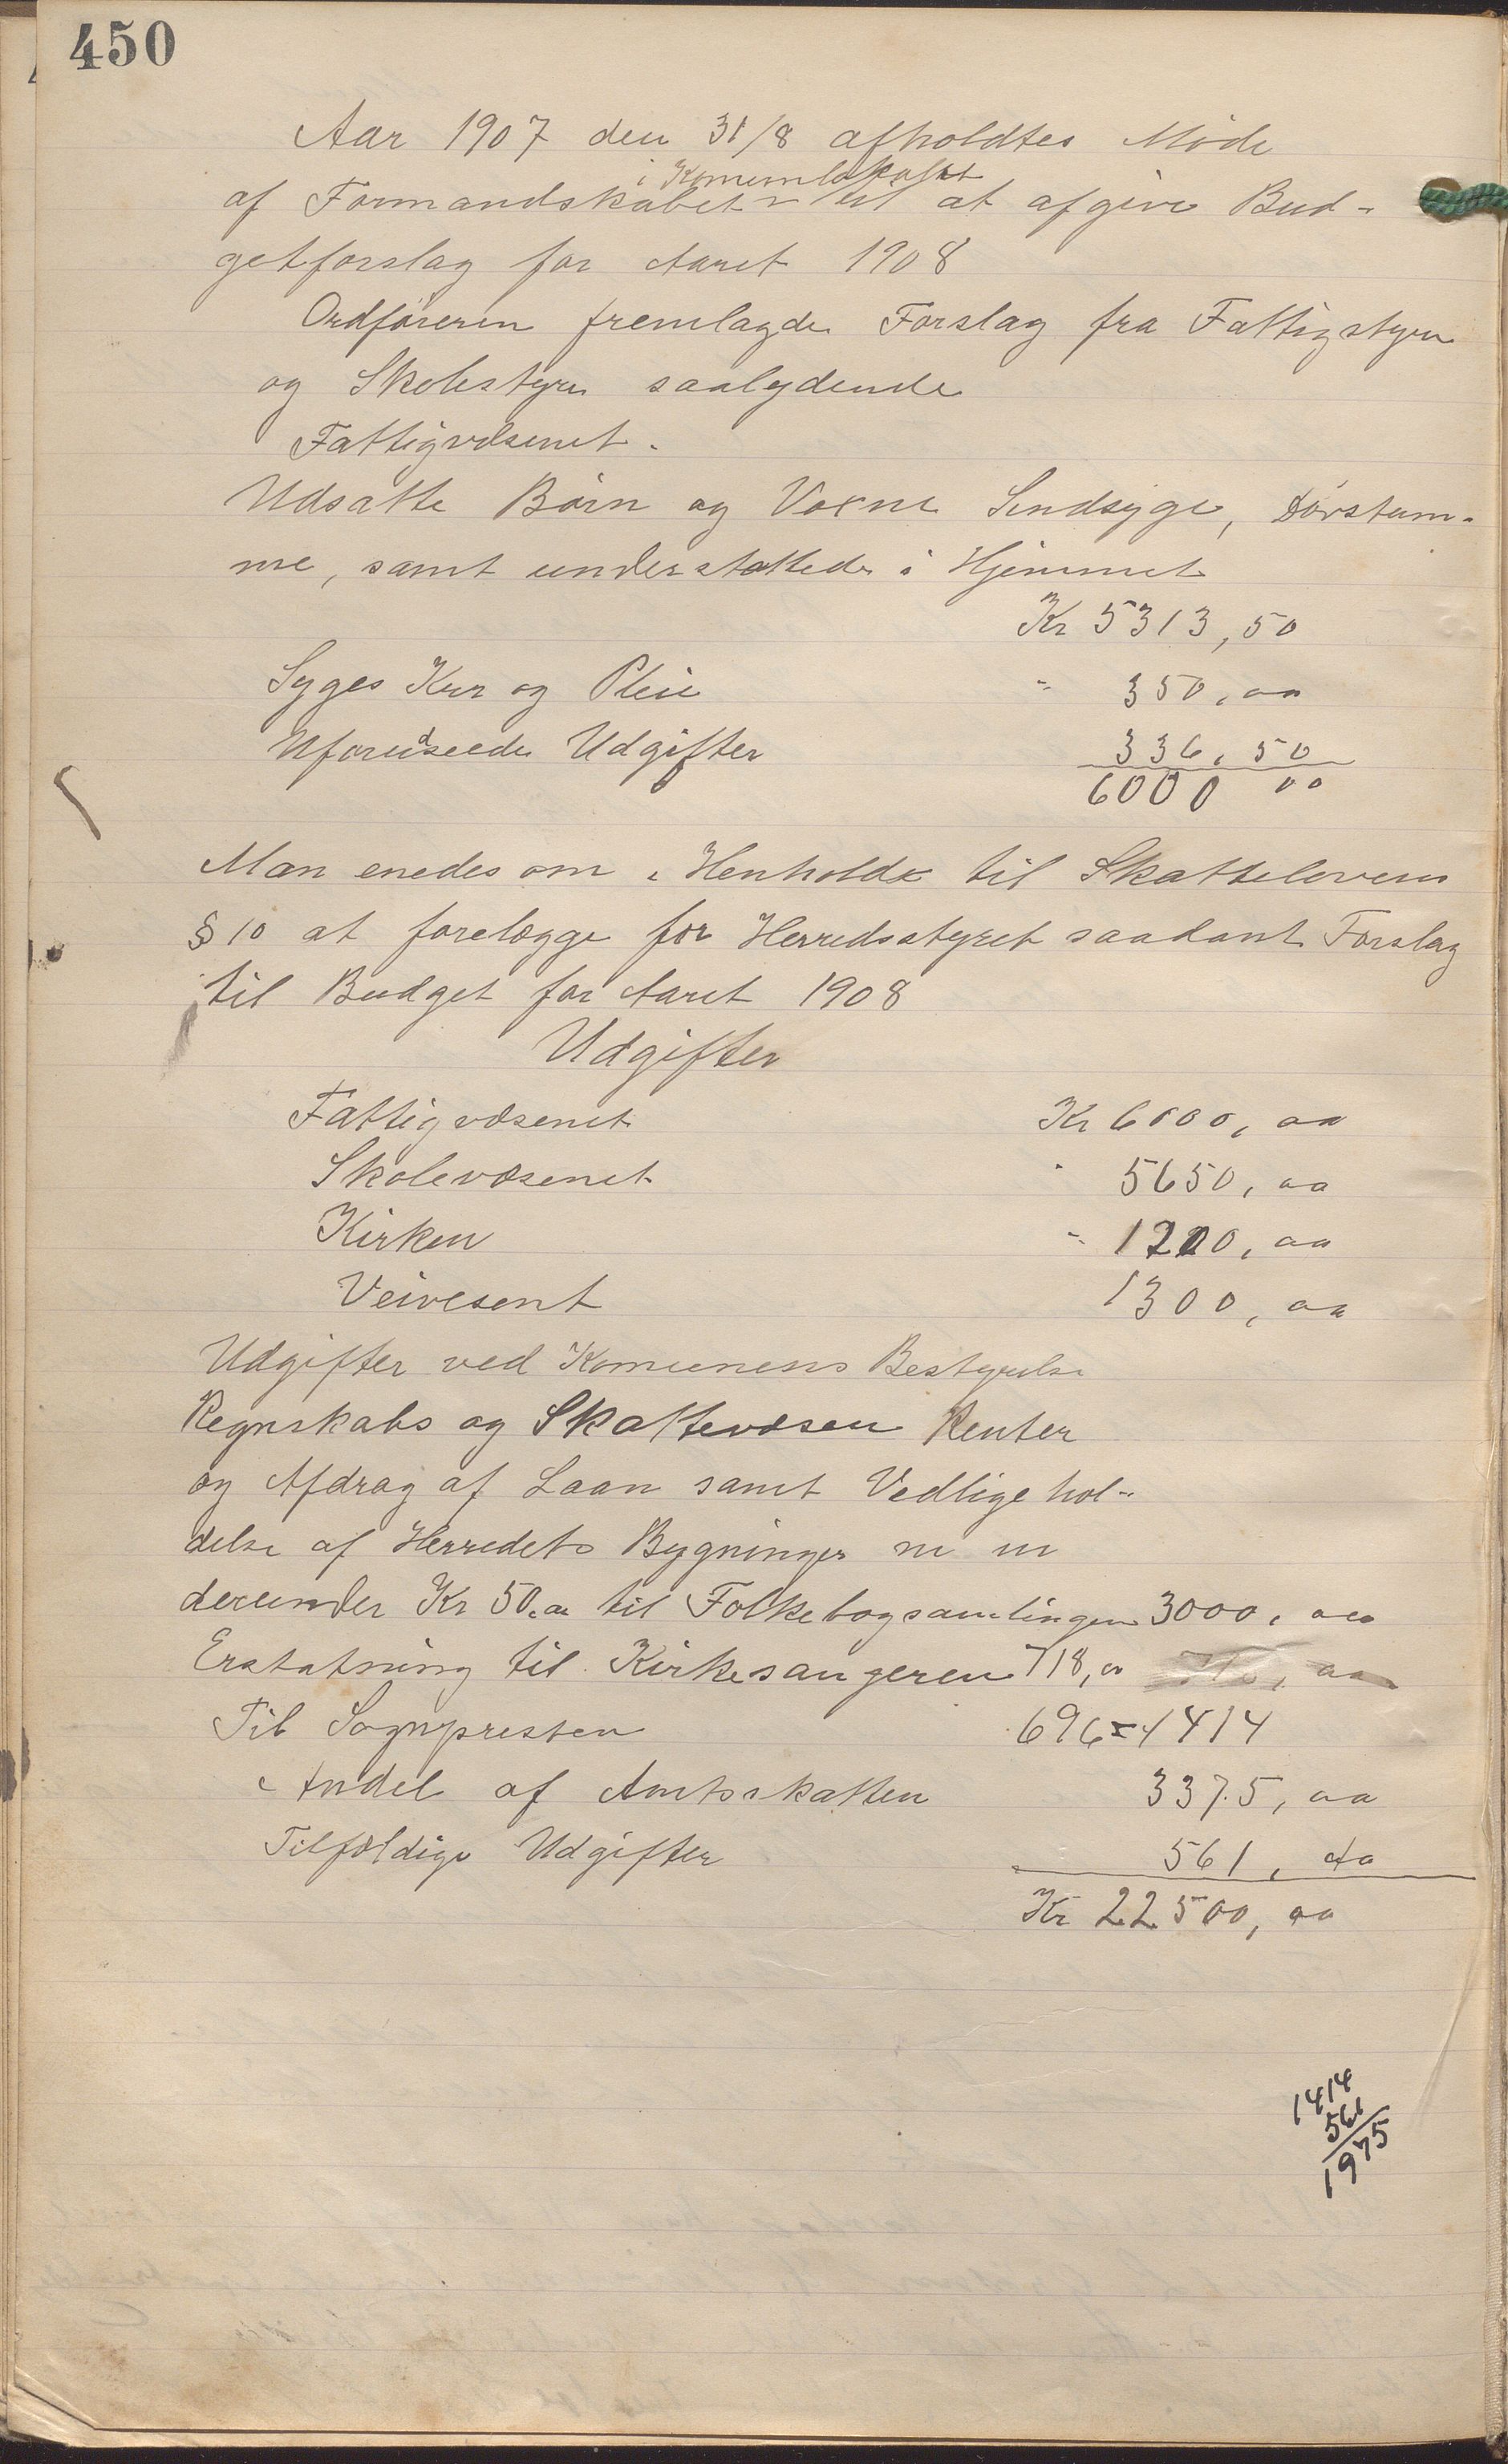 450
Aar 1907 den 31/8 afholdtes Møde
i Komunelokalet
af Formandskabet til at afgive Bud-
getforslag for Aaret 1908
Ordføreren fremlagde Forslag fra Fattigstyre
og Skolestyre saalydende
Fattigvæsenet.
Udsatte Børn og Voxne Sindsyge, Døvstum-
me, samt understøttede i Hjemmet
Kr 5313,50
Syges Kur og Pleie " 350,00
Uforudseede Udgifter 336,50
6000 00
Man enedes om i Henhold til Skattelovens
§ 10 at forelægge for Herredsstyret saadant Forslag
til Budget for Aaret 1908
Udgifter
Fattigvæsenet Kr 6000,00
Skolevæsenet " 5650,00
Kirken " 1200,00
Veivesent 1300,00
Udgifter ved Komunens Bestyrelse
Regnskabs og Skattevæsen Renter
og Afdrag af Laan samt Vedligehol-
delse af Herredets Bygninger m m
derunder Kr 50,00 til Folkebogsamlingen 3000,00
Erstatning til Kirkesangeren 718,00
Til Sognypresten 696 = 1414
Andel af Amtsskatten 3375,00
Tilfældige Udgifter 561,00
Kr 22500,00
1414
561
1975